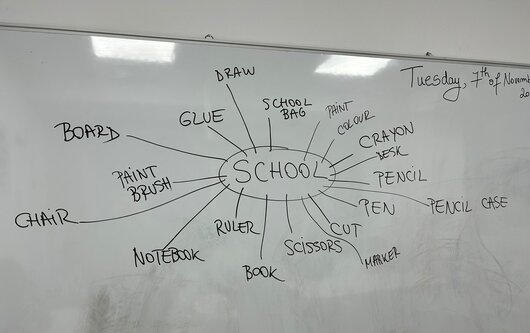 Tuesday, 7th of Novemb
DRAW
SCHOOL
BAG
PAINT
COLOUR
GLUE
BOARD
CRAYON
DESK
PAINT
BRUSH
SCHOOL
PENCIL
CHAIR
PEN
PENCIL CASE
RULER
CUT
NOTEBOOK
SCISSORS
MARKER
BOOK